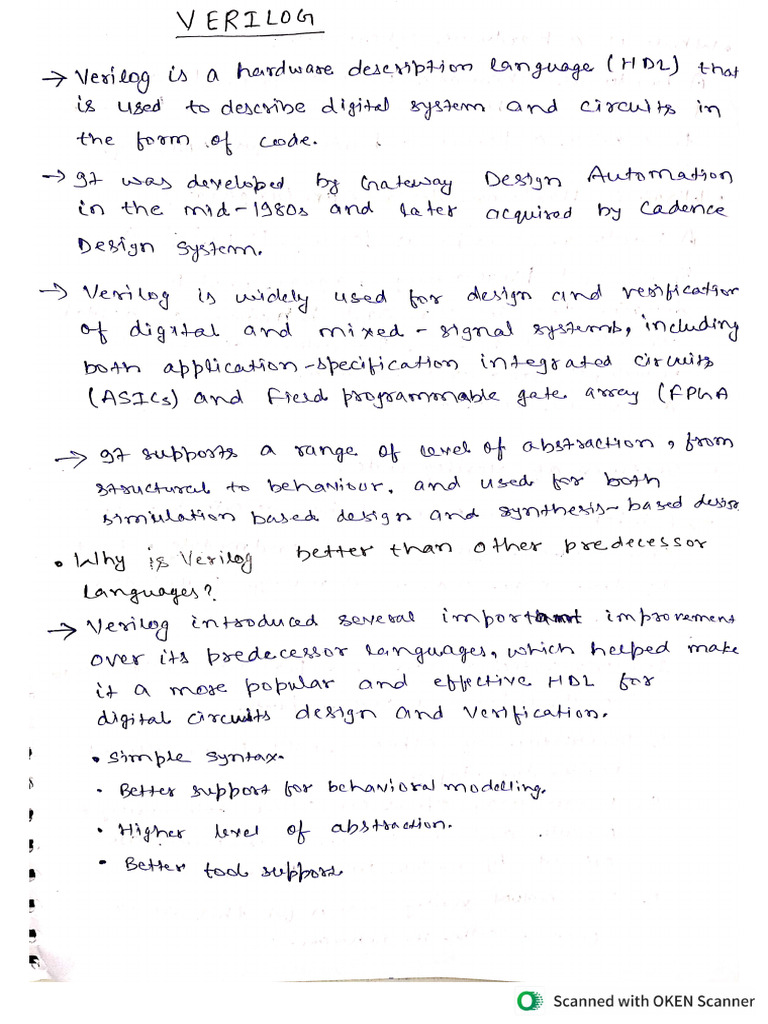 VERILOG
→ Verilog is a hardware description language (HDL) that
is used to describe digital system and circuits in
the form of code.
→ It was developed by Gateway Design Automation
in the mid-1980s and later acquired by Cadence
Design System.
→ Verilog is widely used for design and verification
of digital and mixed-signal systems, including
both application-specification integrated circuits
(ASICs) and Field programmable gate array (FPGA
→ It supports a range of level of abstraction, from
structural to behaviour, and used for both
simulation based design and synthesis-based design
• Why is Verilog better than other predecessor
languages?
→ Verilog introduced several important improvement
over its predecessor languages, which helped make
it a more popular and effective HDL for
digital circuits design and verification.
• Simple syntax.
• Better support for behavioral modelling.
• Higher level of abstraction.
• Better tool support.
Scanned with OKEN Scanner